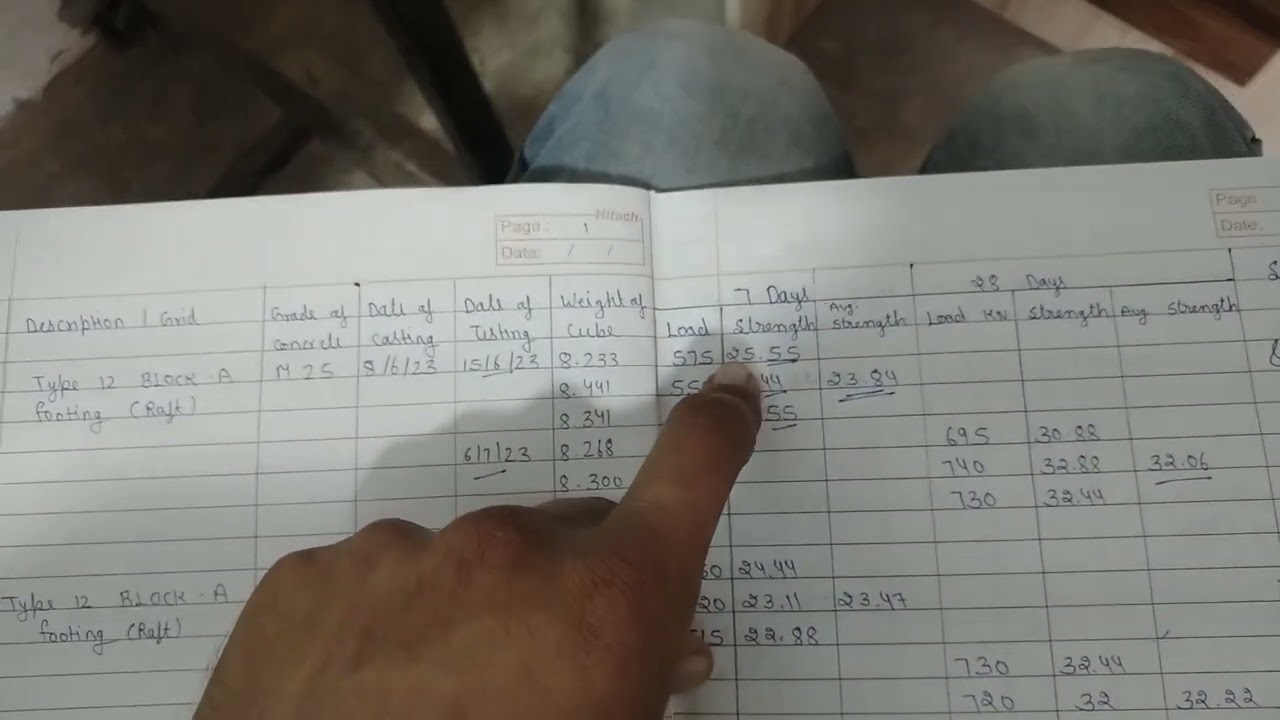 Hitech
Page: 1
Date: / /
Page
Date:
7 Days
28 Days
Description / Grid
Grade of concrete
Date of casting
Date of Testing
Weight of Cube
Load
Strength
Avg. Strength
Load KN
Strength
Avg Strength
Type 12 BLOCK-A M 25 8/6/23 15/6/23 8.233 575 25.55
footing (Raft) 8.441 55 44 23.84
8.341 55
695 30.88
6/7/23 8.268 740 32.88 32.06
8.300 730 32.44
60 24.44
Type 12 BLOCK-A 20 23.11 23.47
footing (Raft) 15 22.88
730 32.44
720 32 32.22